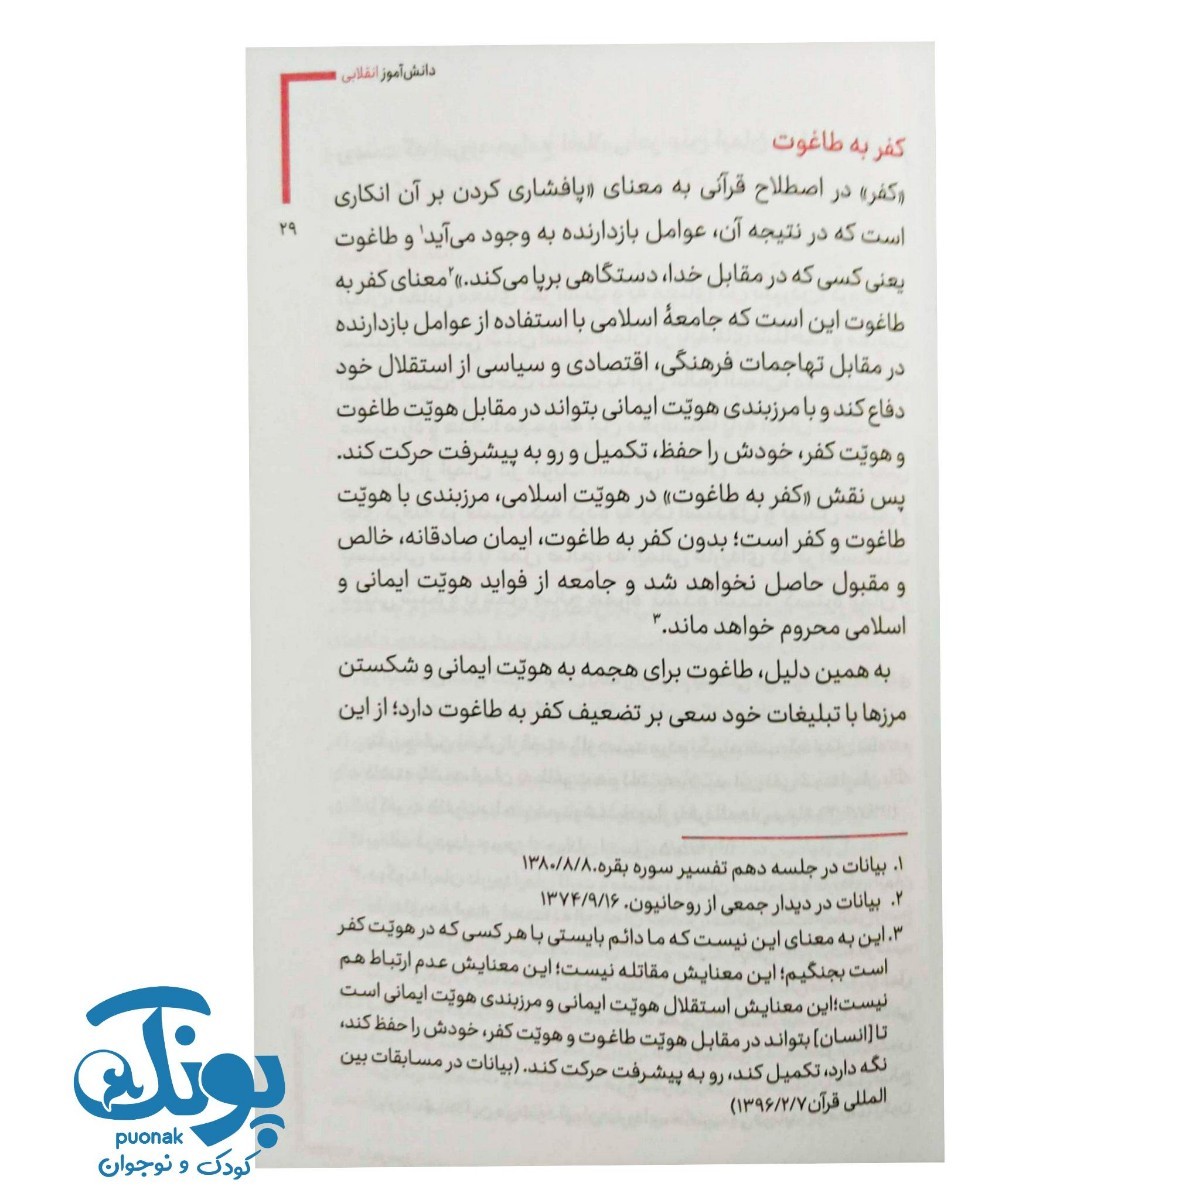 دانش‌آموز انقلابی
۲۹
کفر به طاغوت
«کفر» در اصطلاح قرآنی به معنای «پافشاری کردن بر آن انکاری
است که در نتیجه آن، عوامل بازدارنده به وجود می‌آید۱ و طاغوت
یعنی کسی که در مقابل خدا، دستگاهی برپا می‌کند.»۲ معنای کفر به
طاغوت این است که جامعهٔ اسلامی با استفاده از عوامل بازدارنده
در مقابل تهاجمات فرهنگی، اقتصادی و سیاسی از استقلال خود
دفاع کند و با مرزبندی هویّت ایمانی بتواند در مقابل هویّت طاغوت
و هویّت کفر، خودش را حفظ، تکمیل و رو به پیشرفت حرکت کند.
پس نقش «کفر به طاغوت» در هویّت اسلامی، مرزبندی با هویّت
طاغوت و کفر است؛ بدون کفر به طاغوت، ایمان صادقانه، خالص
و مقبول حاصل نخواهد شد و جامعه از فواید هویّت ایمانی و
اسلامی محروم خواهد ماند.۳
به همین دلیل، طاغوت برای هجمه به هویّت ایمانی و شکستن
مرزها با تبلیغات خود سعی بر تضعیف کفر به طاغوت دارد؛ از این
۱. بیانات در جلسه دهم تفسیر سوره بقره.۱۳۸۰/۸/۸
۲. بیانات در دیدار جمعی از روحانیون. ۱۳۷۴/۹/۱۶
۳. این به معنای این نیست که ما دائم بایستی با هر کسی که در هویّت کفر
است بجنگیم؛ این معنایش مقاتله نیست؛ این معنایش عدم ارتباط هم
نیست؛این معنایش استقلال هویّت ایمانی و مرزبندی هویّت ایمانی است
تا [انسان] بتواند در مقابل هویّت طاغوت و هویّت کفر، خودش را حفظ کند،
نگه دارد، تکمیل کند، رو به پیشرفت حرکت کند. (بیانات در مسابقات بین
المللی قرآن۱۳۹۶/۲/۷)
پونک
puonak
کودک و نوجوان